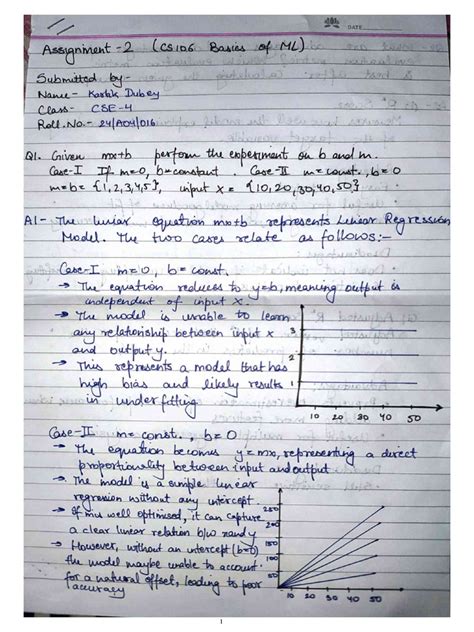 DATE
Assignment-2 (CS106 Basics of ML)
Submitted by-
Name- Kartik Dubey
Class- CSE-4
Roll.No.- 24/A04/016
Q1. Given mx+b perform the experiment on b and m.
Case-I If m=0, b=constant. Case-II m=const., b=0
m=b= {1,2,3,4,5}, input x = {10,20,30,40,50}
A1- The linear equation mx+b represents Linear Regression
Model. The two cases relate as follows:-
Case-I m=0, b=const.
→ The equation reduces to y=b, meaning output is
independent of input x.
→ The model is unable to learn
any relationship between input x
and output y.
→ This represents a model that has
high bias and likely results
in underfitting
3
2
1
10 20 30 40 50
Case-II m=const., b=0
→ The equation becomes y=mx, representing a direct
proportionality between input and output
→ The model is a simple linear
regression without any intercept.
→ If m is well optimised, it can capture
a clear linear relation b/w x and y
→ However, without an intercept (b=0)
the model maybe unable to account
for a natural offset, leading to poor
accuracy
250
200
150
100
50
10 20 30 40 50
1